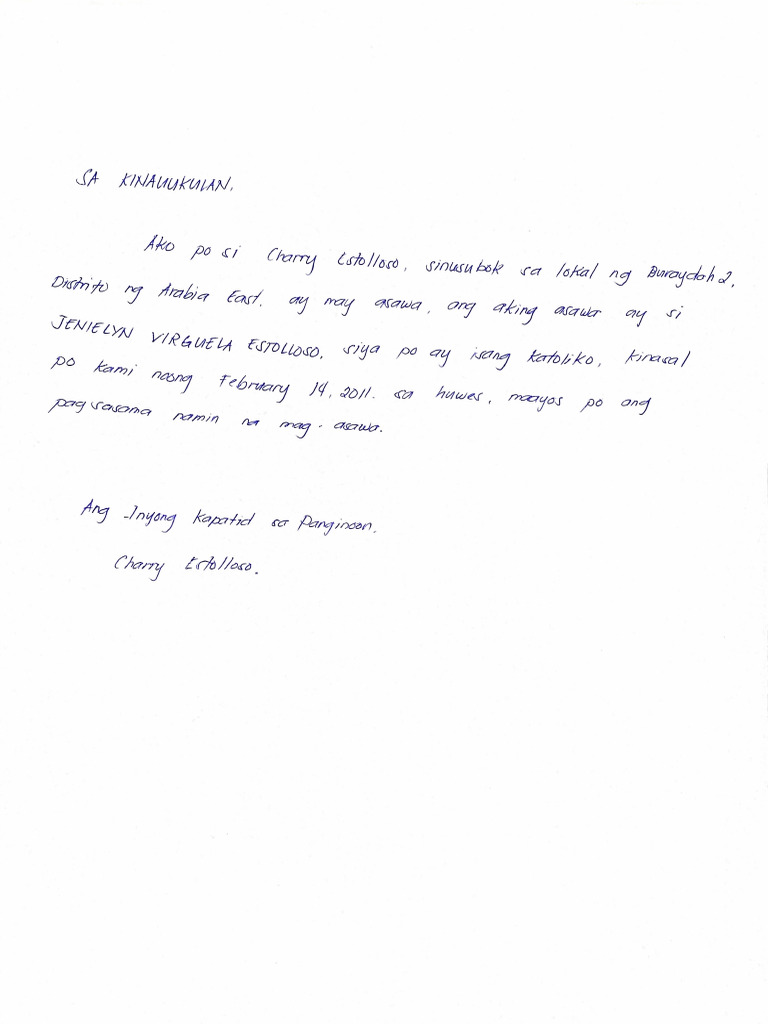 SA KINAUUKULAN,
Ako po si Charry Estolloso, sinusubok sa lokal ng Buraydah 2,
Distrito ng Arabia East, ay may asawa, ang aking asawa ay si
JENIELYN VIRGUELA ESTOLLOSO, siya po ay isang Katoliko, kinasal
po kami noong February 14, 2011. sa huwes, maayos po ang
pagsasama namin na mag-asawa.
Ang Inyong kapatid sa Panginoon,
Charry Estolloso.